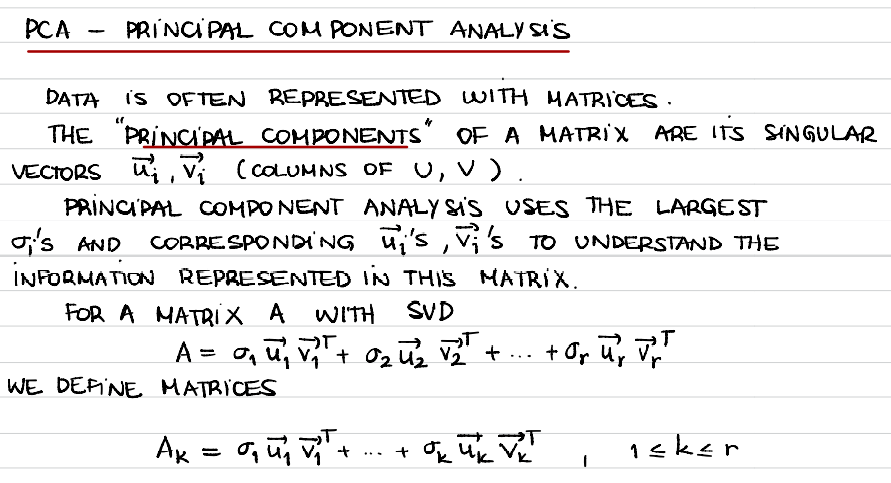 PCA – PRINCIPAL COMPONENT ANALYSIS
DATA IS OFTEN REPRESENTED WITH MATRICES.
THE "PRINCIPAL COMPONENTS" OF A MATRIX ARE ITS SINGULAR
VECTORS u⃗ᵢ, v⃗ᵢ (COLUMNS OF U, V).
PRINCIPAL COMPONENT ANALYSIS USES THE LARGEST
σᵢ's AND CORRESPONDING u⃗ᵢ's, v⃗ᵢ's TO UNDERSTAND THE
INFORMATION REPRESENTED IN THIS MATRIX.
FOR A MATRIX A WITH SVD
A = σ₁ u⃗₁ v⃗₁ᵀ + σ₂ u⃗₂ v⃗₂ᵀ + ... + σᵣ u⃗ᵣ v⃗ᵣᵀ
WE DEFINE MATRICES
Aₖ = σ₁ u⃗₁ v⃗₁ᵀ + ... + σₖ u⃗ₖ v⃗ₖᵀ , 1 ≤ k ≤ r